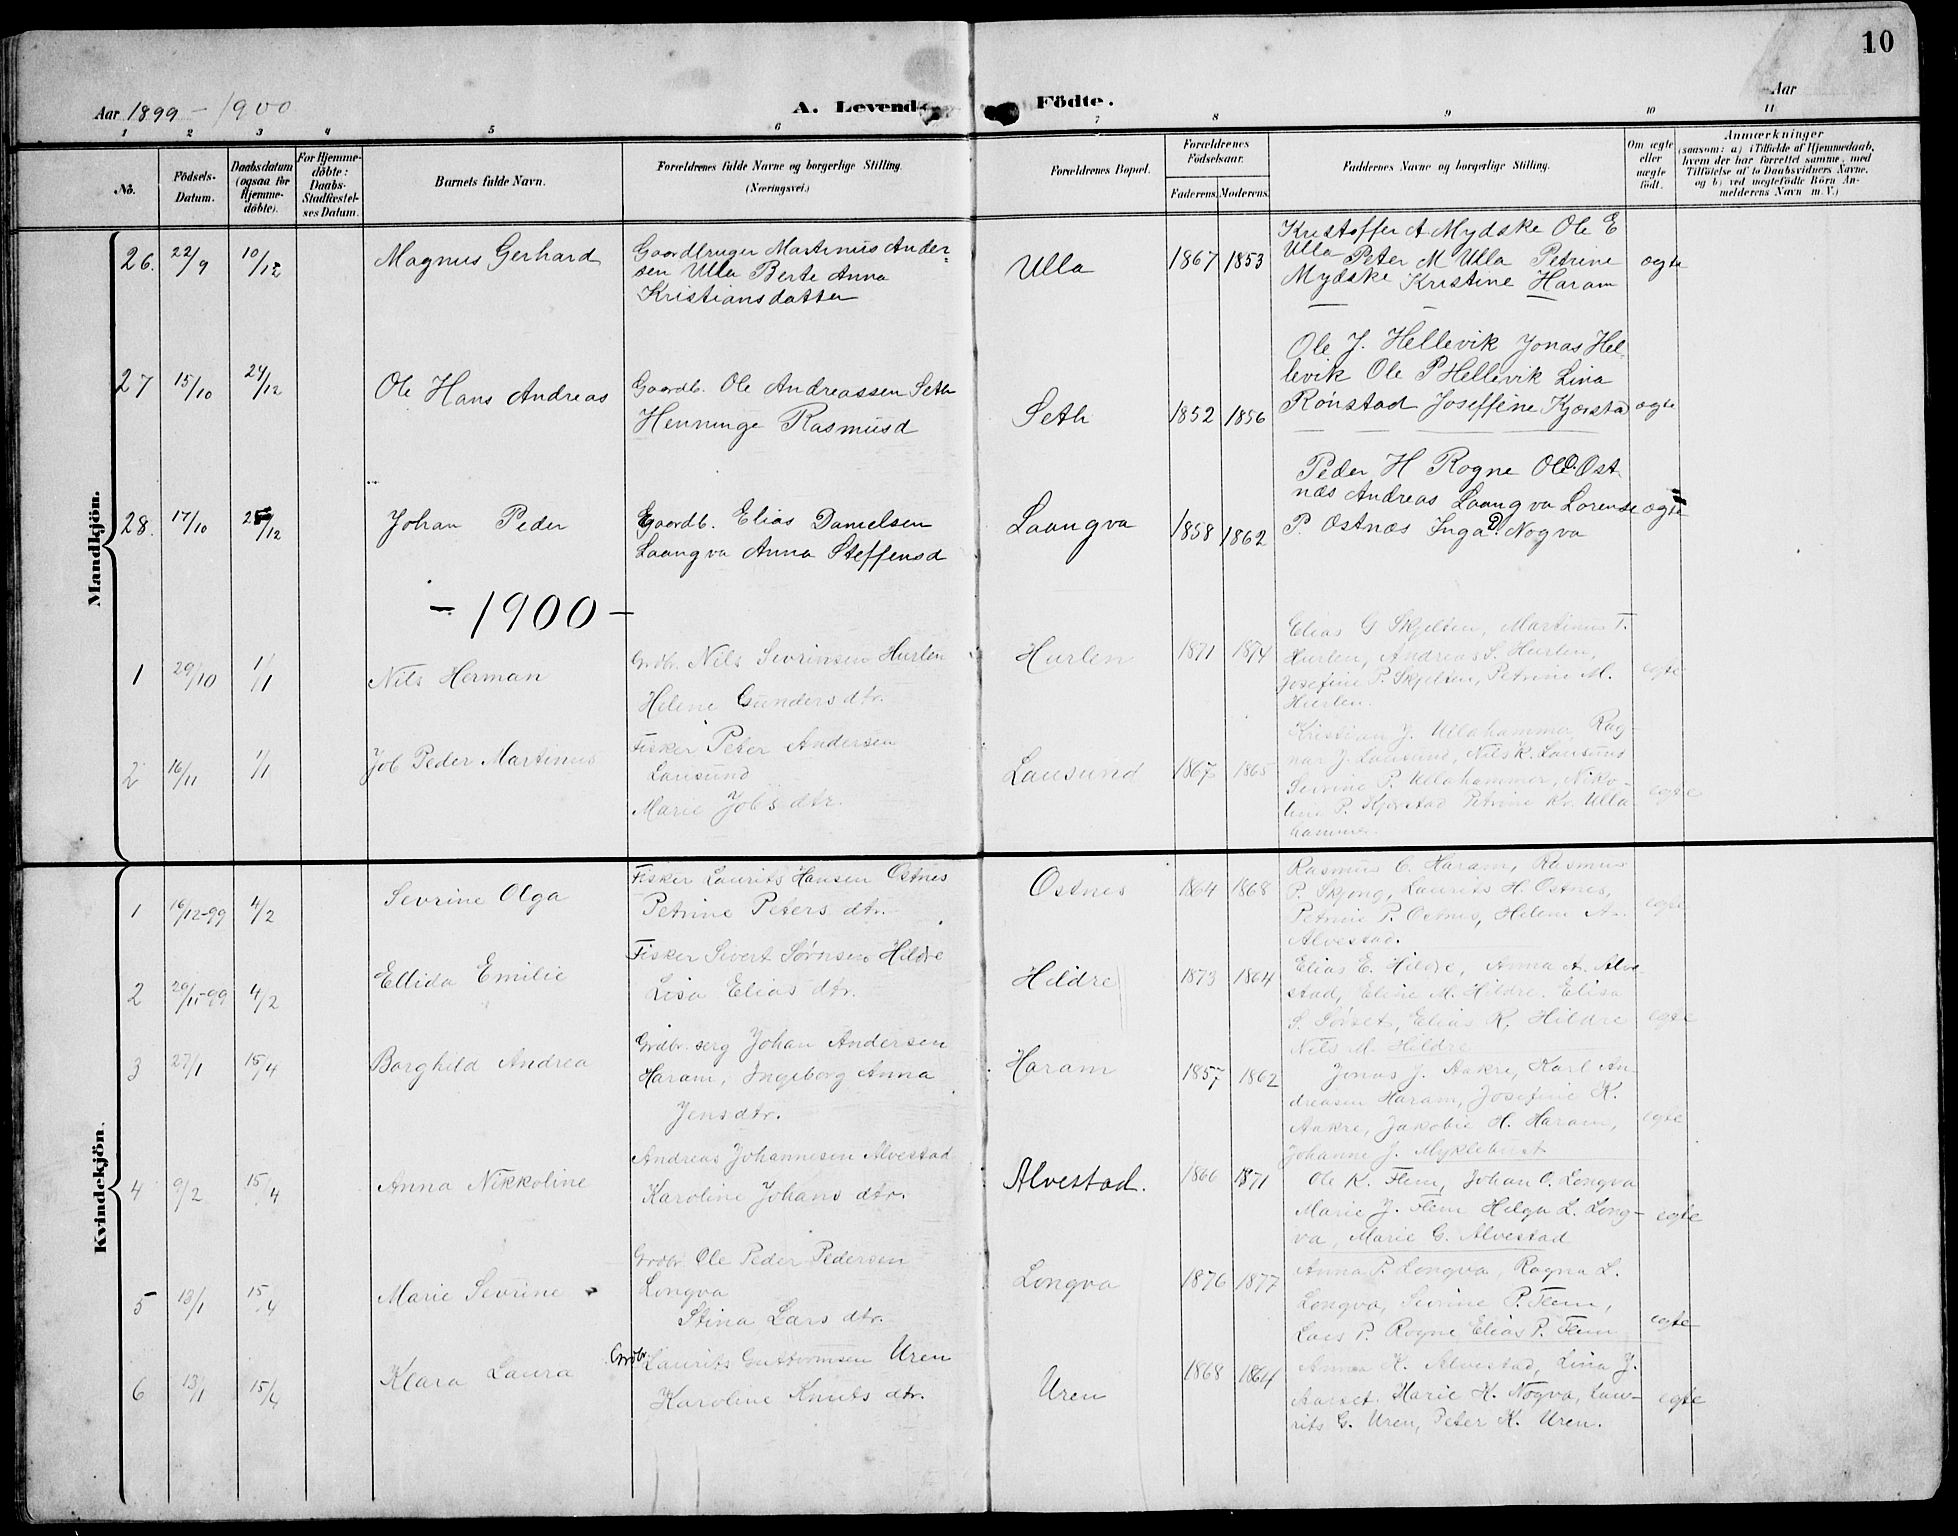 10
Aar 1899 - 1900
A. Levende Födte.
Aar
1 2 3 4 5 6 7 8 9 10 11
No.
Födsels-Datum.
Daabsdatum (ogsaa for Hjemme-döbte).
For Hjemme-döbte: Daabs-Stadfæstel-ses Datum.
Barnets fulde Navn.
Forældrenes fulde Navne og borgerlige Stilling. (Næringsvei.)
Forældrenes Bopæl.
Forældrenes Födselsaar.
Faderens. Moderens.
Faddernes Navne og borgerlige Stilling.
Om ægte eller uægte født.
Anmærkninger
(saasom: a) i Tilfælde af Hjemmedaab,
hvem der har forrettet samme, med
Tilföielse af to Daabsvidners Navne,
og b) ved uægtefödte Börn An-
melderens Navn m. V.)
Mandkjön.
26. 22/9 10/12 Magnus Gerhard
Gaardbruger Martinus Ander-
sen Ulla Berte Anna
Kristiansdatter
Ulla 1867 1853
Kristoffer A Mydske Ole E
Ulla Peter M Ulla Petrine
Mydske Kristine Haram
ægte
27 15/10 24/12 Ole Hans Andreas
Gaardb. Ole Andreassen Seth
Henninge Rasmusd
Seth 1852 1856
Ole J. Hellevik Jonas Hel-
levik Ole P Hellevik Lina
Rönstad Joseffine Kjærstad
ægte
28. 17/10 25/12 Johan Peder
Gaardb. Elias Danielsen
Laangva Anna Steffensd
Laangva 1858 1862
Peder H Rogne Ole Ost-
næs Andreas Laangva Lorense
P. Ostnæs Inga D. Nogva
ægte
- 1900 -
1 29/10 1/1 Nils Herman
Grdbr. Nils Sevrinsen Hurlen
Helene Gunders dtr.
Hurlen 1871 1874
Elias G Skjelten, Martinus T.
Hurlen, Andreas S. Hurlen,
Josefine P. Skjelten, Petrine M.
Hurlen.
egte
2 16/11 1/1 Job Peder Martinus
Fisker Peter Andersen
Lausund
Marie Job's dtr.
Lausund 1867 1865
Kristian J. Ullahammer, Rag-
nar J. Lausund, Nils K. Lausund
Sevrine P. Ullahammer, Niko-
line P. Kjærstad Petrine Kr. Ulla-
hammer.
egte
Kvindekjön.
1 16/12-99 4/2 Sevrine Olga
Fisker Laurits Hansen Ostnes
Petrine Peters dtr.
Ostnes 1864 1868
Rasmus C. Haram, Rasmus
P. Skjong, Laurits H. Ostnes,
Petrine P. Ostnes, Helene A.
Alvestad.
egte
2 29/11-99 4/2 Ellida Emilie
Fisker Sivert Sørnsen Hildre
Lisa Elias dtr.
Hildre 1873 1864
Elias E. Hildre, Anna A. Alve-
stad, Eline M. Hildre. Elisa
S. Søvset, Elias K. Hildre
Nils M. Hildre
egte
3 27/1 15/4 Borghild Andrea
Grdbr. serg Johan Andersen
Haram, Ingeborg Anna
Jens dtr.
Haram 1857 1862
Jonas J. Aakre, Karl An-
dreasen Haram, Josefine K.
Aakre, Jakobie H. Haram,
Johanne J. Myklebust
egte
4 9/2 15/4 Anna Nikkoline
Andreas Johannesen Alvestad
Karoline Johans dtr.
Alvestad. 1866 1871
Ole K. Flem, Johan O. Longva
Marie J. Flem Helga L. Long-
va, Marie G. Alvestad
egte
5 13/1 15/4 Marie Sevrine
Grdbr. Ole Peder Pedersen
Longva
Stina Lars dtr.
Longva 1876 1877
Anna P. Longva, Ragna L.
Longva, Sevrine P. Flem,
Lars P. Rogne Elias P. Flem
egte
6 13/1 15/4 Klara Laura
Grdbr. Laurits Guttormsen Uren
Karoline Knuts dtr.
Uren 1868 1864
Anna K. Alvestad, Lina J.
Aarset. Marie K. Nogva, Lau-
rits G. Uren, Peter K. Uren.
egte